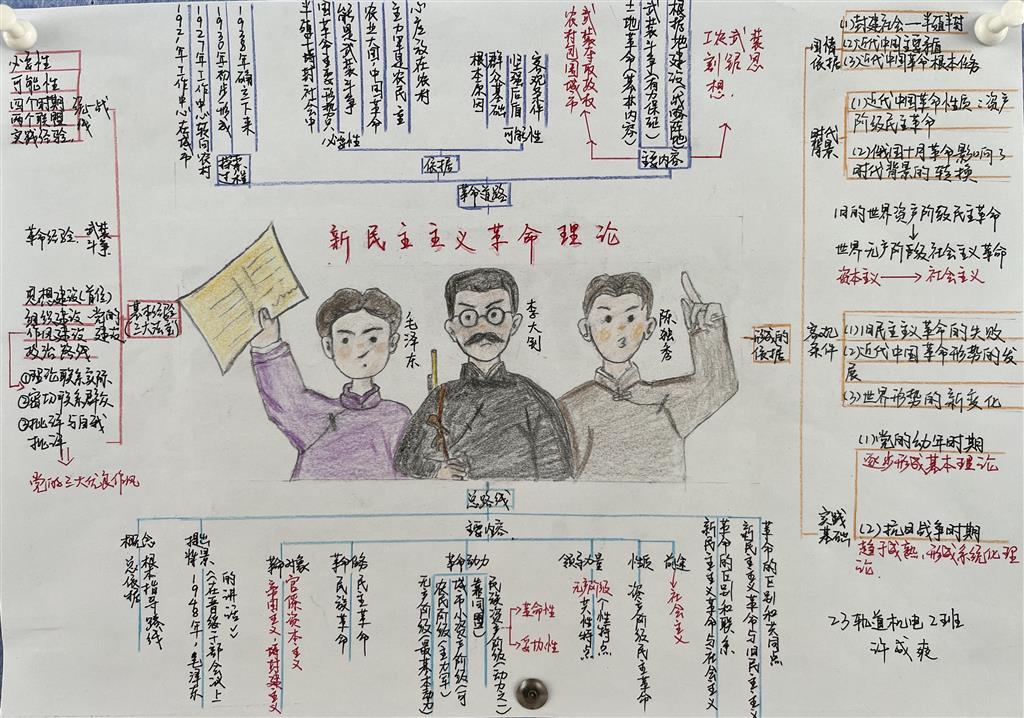 新民主主义革命理论
毛泽东
李大钊
陈独秀
革命道路
探索
过程
1921年工作中心在城市
1927年工作中心转向农村
1930年初步形成
1938年确立下来
依据
必要性
半殖民地半封建社会中
农业大国:中国革命
主力军是农民
心应放在农村
可能性
根本原因
群众基础
坚强后盾
客观条件
主要内容
土地革命(基本内容)
武装斗争(有力保证)
根据地建设(战略阵地)
农村包围城市
武装夺取政权
工农武装
割据思
想.
基本经验
(三大法宝)
必要性
可能性
四个时期
两个联盟
实践经验
统一战
线
革命经验
武装
斗争
思想建设(首位)
组织建设
作风建设
政治路线
党的
建设
①理论联系实际
②密切联系群众
③批评与自我
批评
党的三大优良作风
形成的
依据
国情
依据
(1)封建社会—半殖半封
(2)近代中国主要矛盾
(3)近代中国革命根本任务
时代
背景
(1)近代中国革命性质:资产
阶级民主革命
(2)俄国十月革命影响了
时代背景的转换
旧的世界资产阶级民主革命
世界无产阶级社会主义革命
资本主义
社会主义
客观
条件
(1)旧民主主义革命的失败
(2)近代中国革命形势的发
展
(3)世界形势的新变化
实践
基础
(1)党的幼年时期
逐步形成基本理论
(2)抗日战争时期
趋于成熟,形成系统化理
论.
23轨道机电2班
许成爽
总路线
主要内容
概念
总依据
根本指导路线
提出
背景
1948年毛泽东
《在晋绥干部会议上
的讲话》
革命对象
帝国主义、封建主义
官僚资本主义
民族革命
民主革命
革命动力
无产阶级(最基本动力)
农民阶级(主力军)
城市小资产阶级(可
靠同盟)
民族资产阶级(动力之一)
革命性
妥协性
领导力量
无产阶级
共性特点
个性特点
性质
资产阶级民主革命
前途
社会主义
新民主主义革命与社会主义
革命的区别和联系
新民主主义革命与旧民主主义
革命的区别和共同点